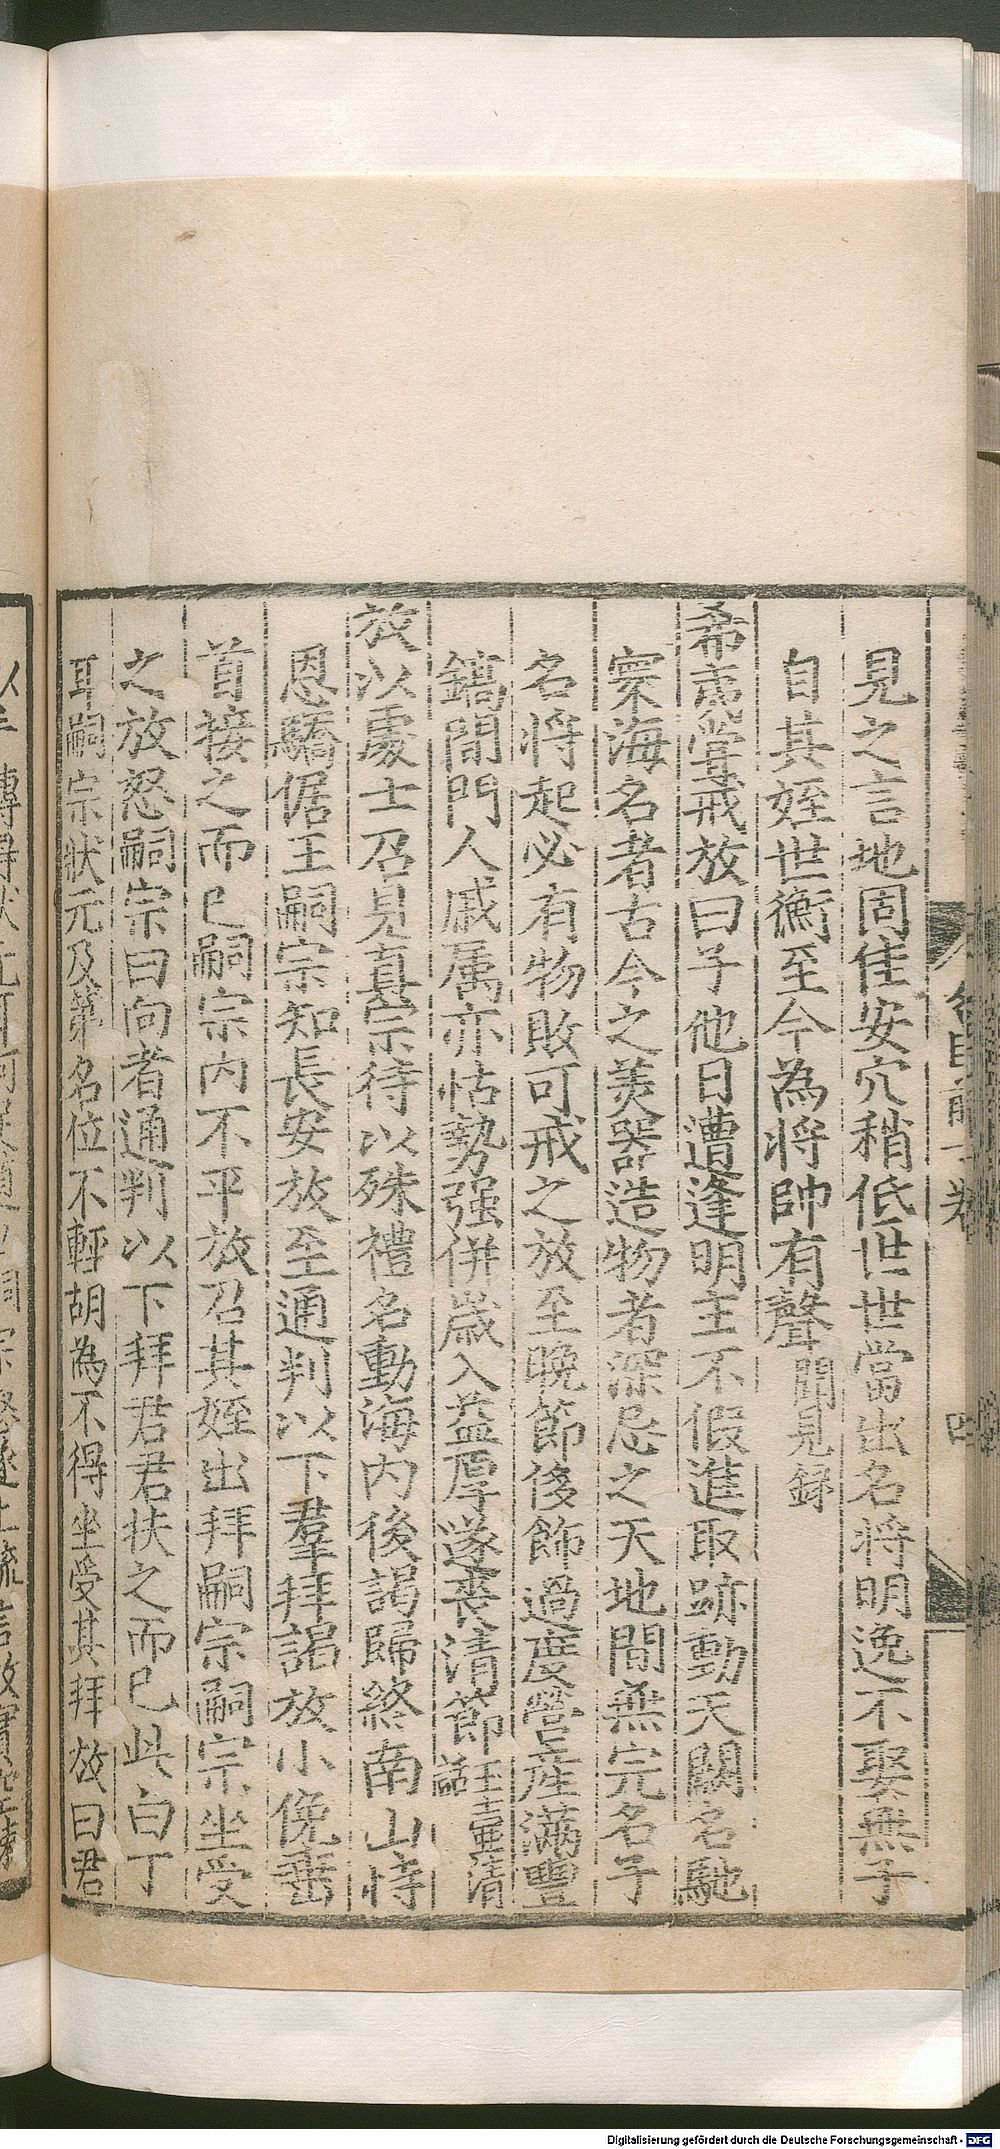 見之言地固佳安穴稍低世世當出名將明逸不娶無子
自其姪世衡至今為將帥有聲聞見録
希夷嘗戒放曰子他日遭逢明主不假進取跡動天闕名馳
寰海名者古今之羙器造物者深忌之天地間無完名子
名將起必有物敗可戒之放至晚節侈飾過度營産滿豐
鎬間門人戚属亦怙勢强併歲入益厚遂喪清節玉壷清話
放以處士召見真宗待以殊禮名動海内後謁歸終南山恃
恩驕倨王嗣宗知長安放至通判以下羣拜謁放小俛垂
首接之而已嗣宗内不平放召其姪出拜嗣宗嗣宗坐受
之放怒嗣宗曰向者通判以下拜君君扶之而已此白丁
耳嗣宗狀元及第名位不輕胡為不得坐受其拜放曰君
Digitalisierung gefördert durch die Deutsche Forschungsgemeinschaft - DFG